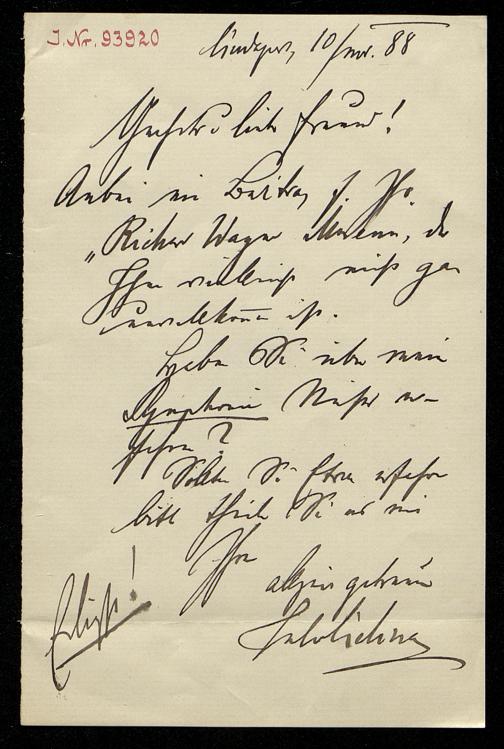 I.Nr. 93920
Budapest, 10/nov. 88
Geehrter lieber Freund!
Anbei ein Beitrag f. Ihr
„Richard Wagner Museum, der
Ihnen vielleicht nicht ganz
unwillkommen ist.
Haben Sie über meine
Symphonie Nichts er-
fahren?
Sollten Sie Etwas erfahren
bitte theilen Sie es mir
Ihr
allzeit getreuer
Eiligst!